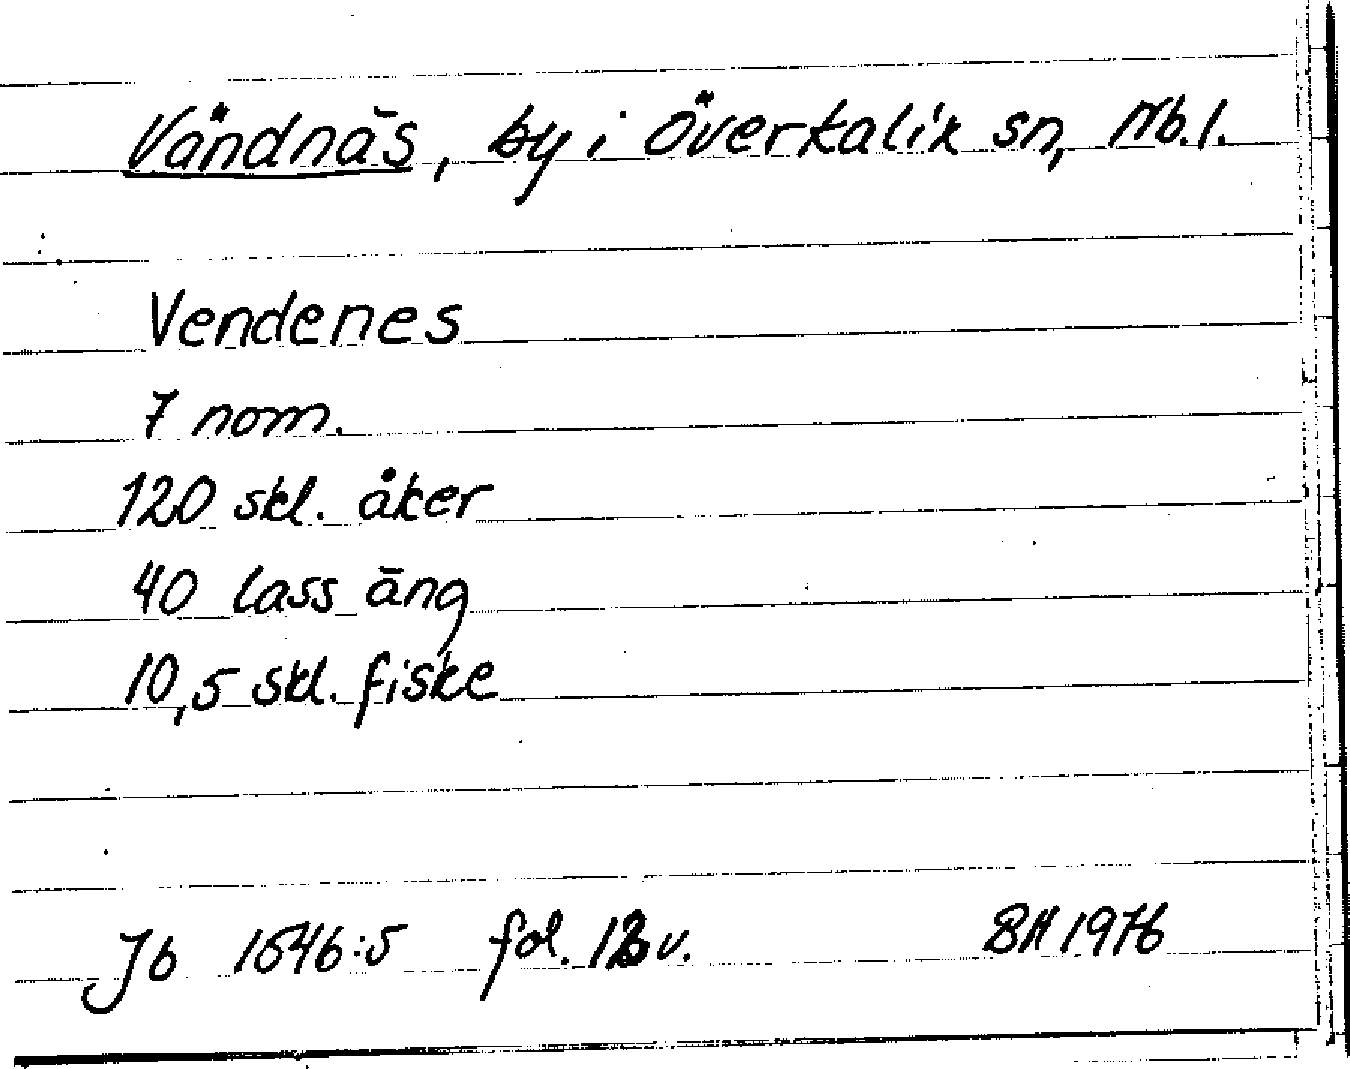 Vändnäs, by i Överkalix sn, Nb.l.
Vendenes
7 nom.
120 skl. åker
40 lass äng
10,5 skl. fiske
Jb 1546:5 fol. v. 1976